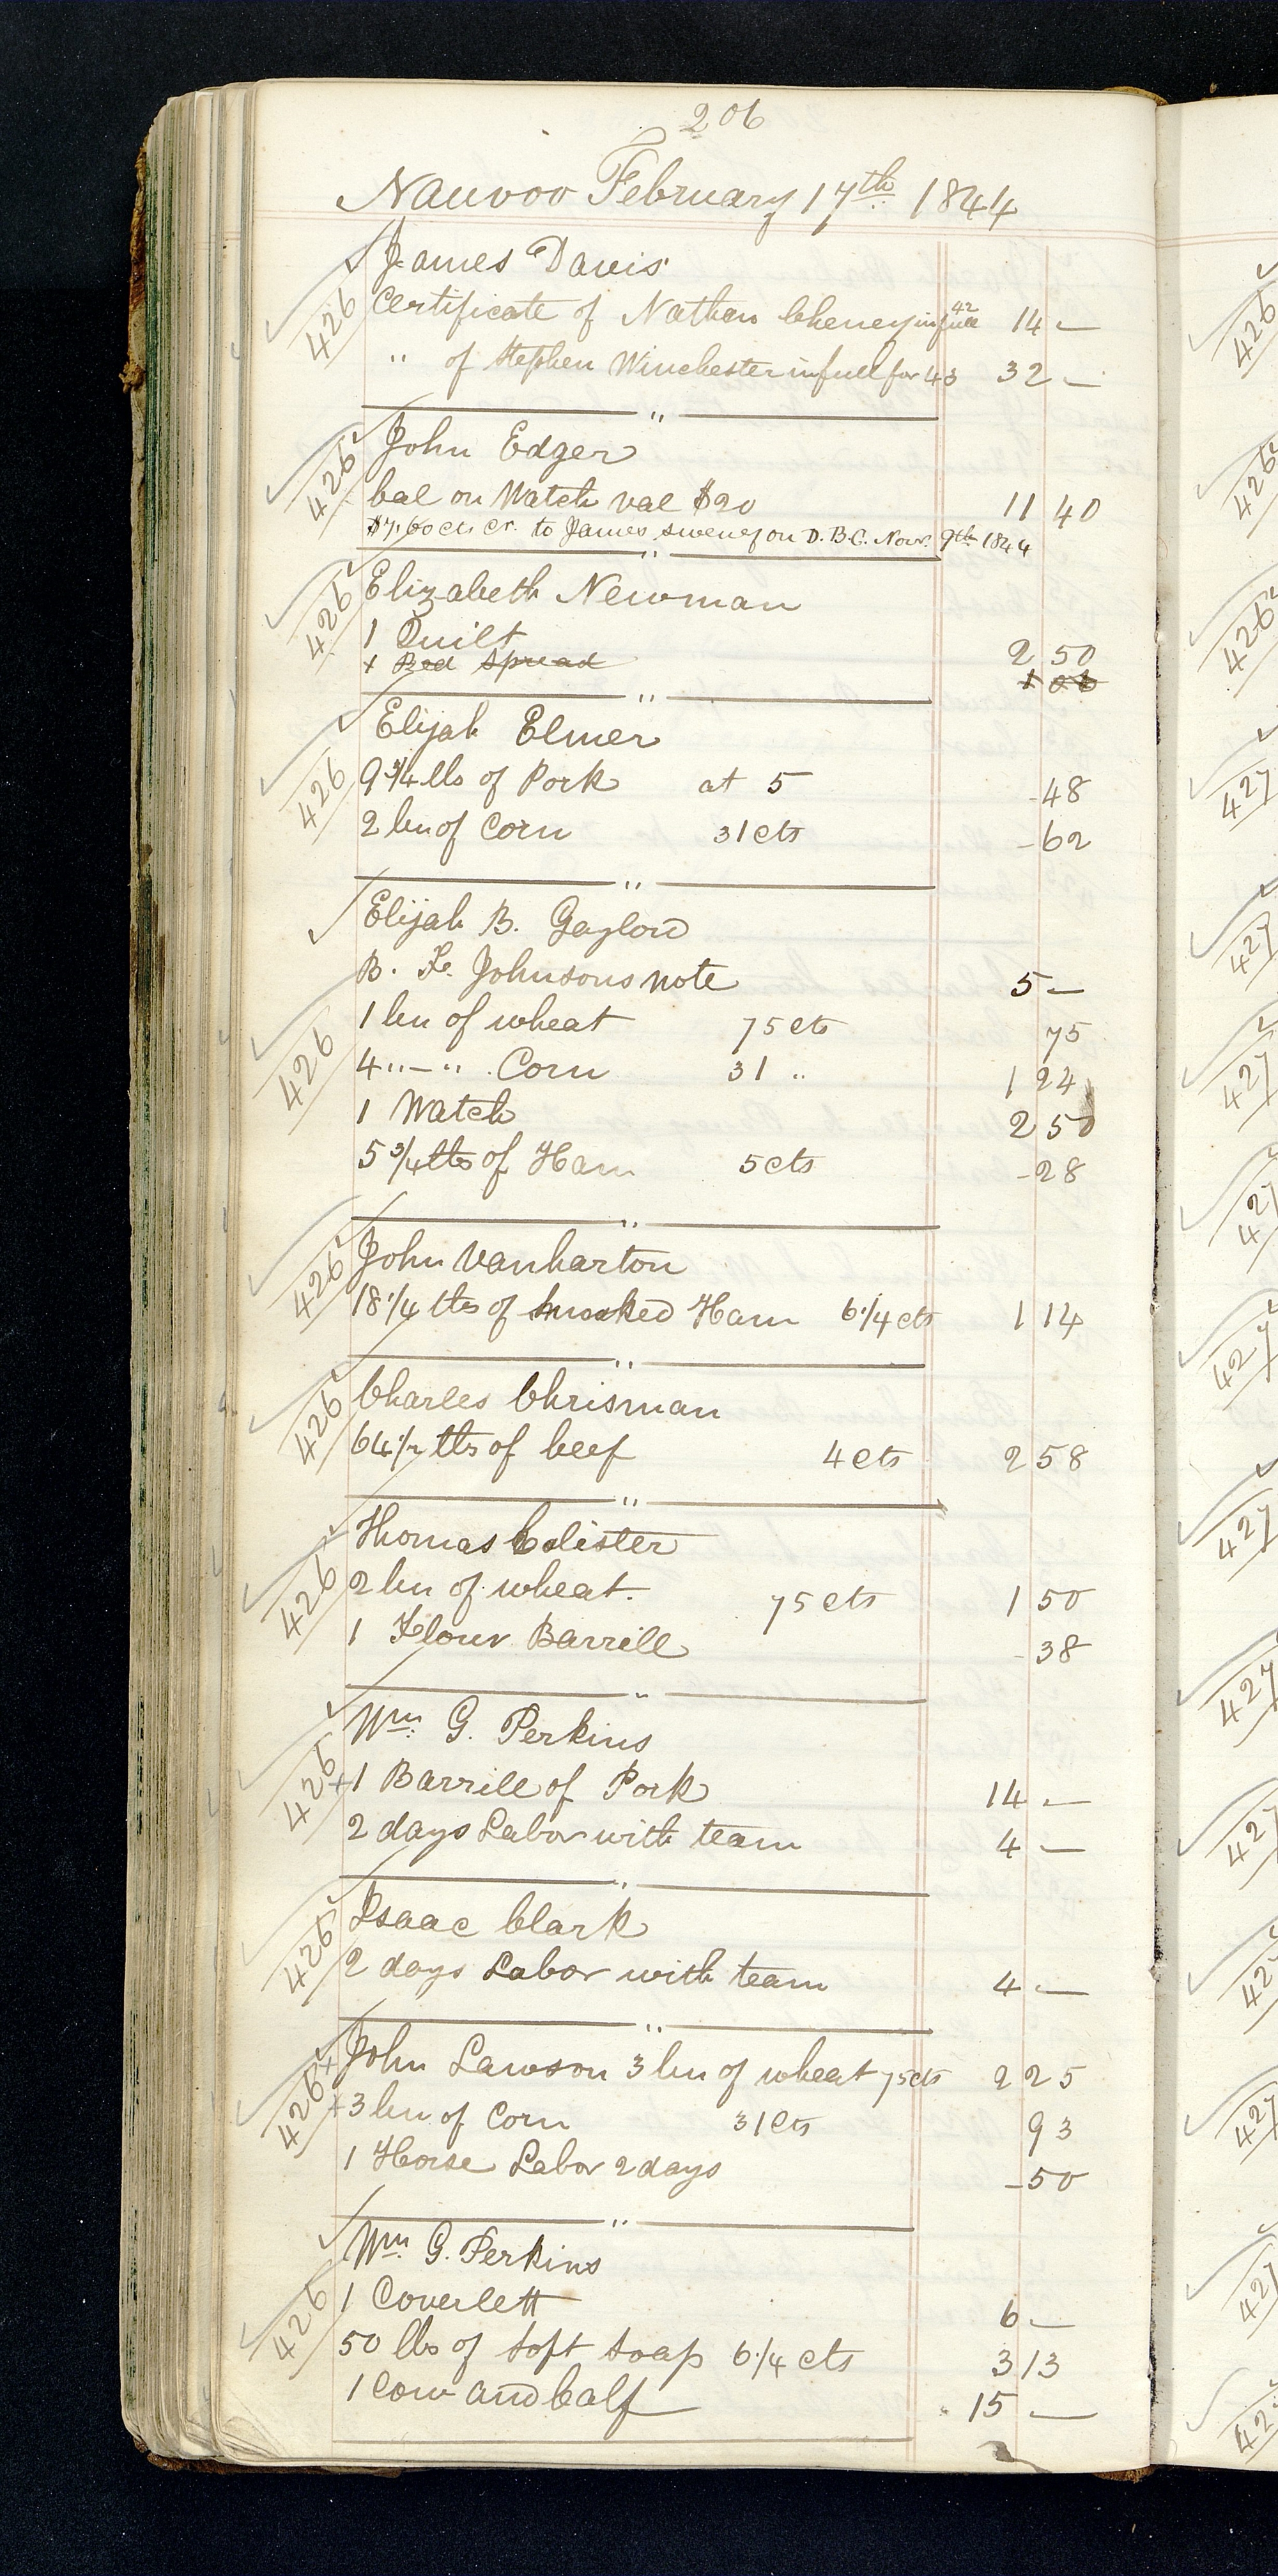 206
Nauvoo February 17th 1844
426 James Davis
Certificate of Nathan Cheney in full 42 14 —
" of Stephen Winchester in full for 43 32 —
"
426 John Edger
bal on Watch val $20 11 40
$7.60 cts cr. to James sweney on D. B. C. Nov. 9th 1844
"
426 Elizabeth Newman
1 Quilt 2 50
1 Bed Spread 1 00
"
426 Elijah Elmer
9 3/4 lbs of Pork at 5 - 48
2 bu of Corn 31 cts - 62
"
Elijah B. Gaylord
B. F. Johnsons note 5 —
1 bu of wheat 75 cts 75
426 4 " — " Corn 31 " 1 24
1 Watch 2 50
5 3/4 lbs of Ham 5 cts - 28
"
426 John Vanbarton
18 1/4 lbs of smoaked Ham 6 1/4 cts 1 14
"
426 Charles Chrisman
64 1/2 lbs of beef 4 cts 2 58
"
426 Thomas Colister
2 bu of wheat. 75 cts 1 50
1 Flour Barrell - 38
"
426 Wm. G. Perkins
+ 1 Barrell of Pork 14 —
2 days Labor with team 4 —
"
426 Isaac Clark
2 days Labor with team 4 —
"
426 + John Lawson 3 bu of wheat 75 cts 2 25
+ 3 bu of Corn 31 cts 93
1 Horse Labor 2 days - 50
"
Wm. G. Perkins
426 1 Coverlett 6 —
50 lbs of soft soap 6 1/4 cts 3 13
1 Cow and Calf 15 —
426
426
426
427
427
427
427
427
427
427
427
427
427